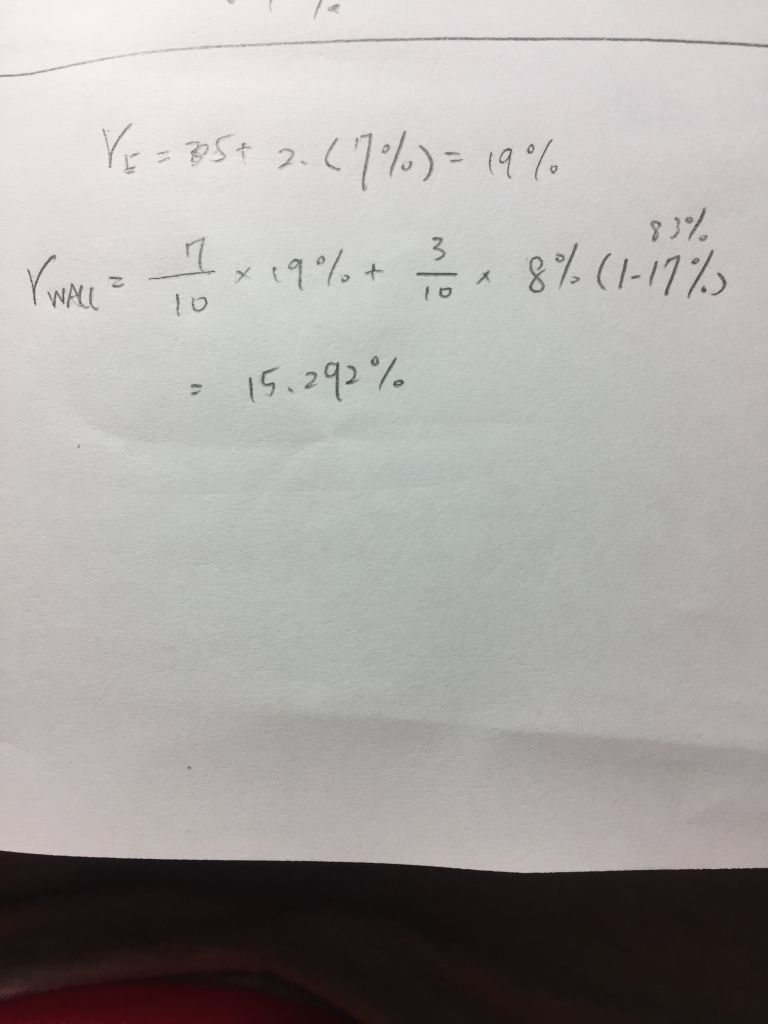 r_E = 5 + 2. (7%) = 19%
83%
r_WACC = 7/10 × 19% + 3/10 × 8% (1-17%)
= 15.292%